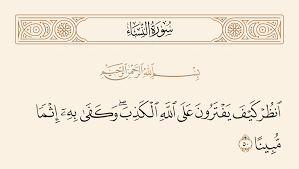 سُورَةُ النِّسَاءِ
بِسْمِ اللَّهِ الرَّحْمَٰنِ الرَّحِيمِ
ٱنظُرۡ كَيۡفَ يَفۡتَرُونَ عَلَى ٱللَّهِ ٱلۡكَذِبَۖ وَكَفَىٰ بِهِۦٓ إِثۡمٗا
مُّبِينًا ٥٠